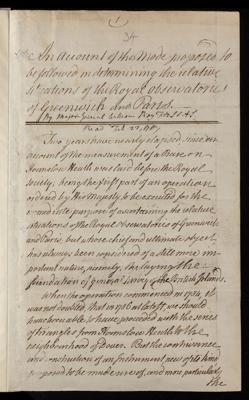 (1)
34
An Account of the Mode proposed to
be followed in determining the relative
Situations of the Royal Observatories
of Greenwich and Paris.
By Major General William Roy F.R.S. & A.S.
Read Feb. 22. 1787
Two years have nearly elapsed since an
account of the measurement of a Base on
Hounslow Heath was laid before the Royal
Society, being the first part of an operation
ordered by His Majesty to be executed for the
immediate purpose of ascertaining the relative
situations of the Royal Observatories of Greenwich
and Paris, but whose chief and ultimate object
has always been considered of a still more im-
portant nature, namely, the laying the
foundation of a general survey of the British Islands.
When the operation commenced in 1784, it
was not doubted, that in 1785 at latest, we should
have been able to have proceeded with the series
of triangles from Hounslow Heath to the
neighbourhood of Dover. But the contrivance
and construction of an Instrument new of its kind
proposed to be made use of, and more particularly
the